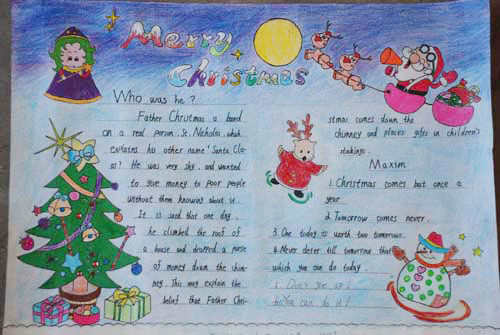 Merry
Christmas
Who was he?
Father Christmas is based
on a real person, St. Nicholas, which
explains his other name 'Santa Cla-
us'? He was very shy, and wanted
to give money to poor people
without them knowing about it.
It is said that one day,
he climbed the roof of
a house and dropped a purse
of money down the chim-
ney. This may explain the
belief that Father Chri-
stmas comes down the
chimney and places gifts in children's
stokings.
Maxim
1. Christmas comes but once a
year
2. Tomorrow comes never.
3. One today is worth two tomorrows.
4. Never deter till tomorrow that
which you can do today.
can do it!